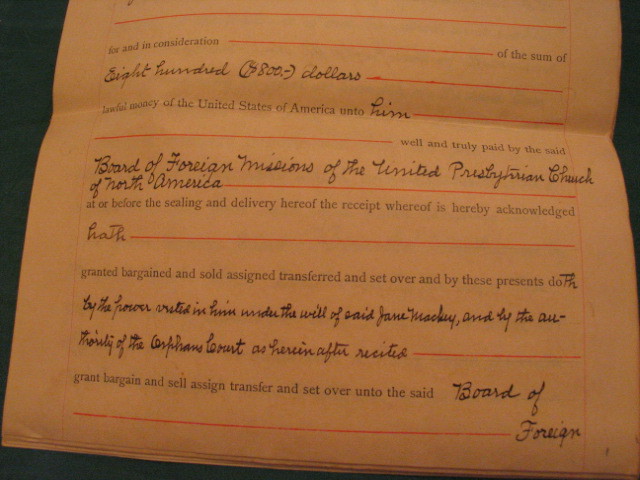 for and in consideration of the sum of
Eight hundred ($800.-) dollars
lawful money of the United States of America unto him
well and truly paid by the said
Board of Foreign Missions of the United Presbyterian Church
of North America
at or before the sealing and delivery hereof the receipt whereof is hereby acknowledged
hath
granted bargained and sold assigned transferred and set over and by these presents doth
by the power vested in him under the will of said Jane Mackey, and by the au-
thority of the Orphans Court as herein after recited
grant bargain and sell assign transfer and set over unto the said Board of
Foreign